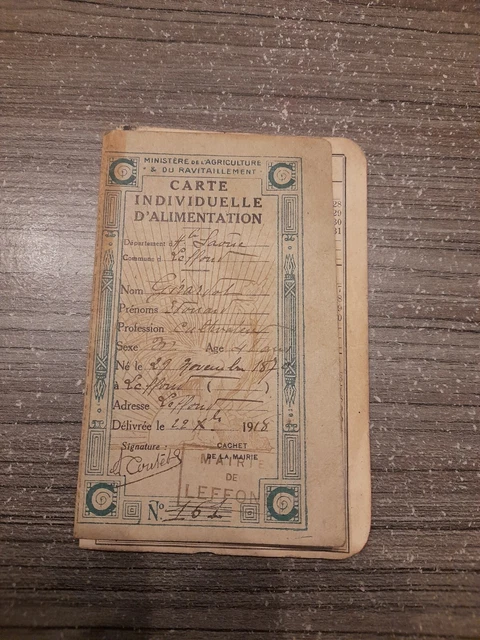 C MINISTÈRE DE L'AGRICULTURE C
& DU RAVITAILLEMENT
CARTE
INDIVIDUELLE
D'ALIMENTATION
Département d Hte Saône
Commune d Leffond
Nom
Prénoms
Profession Cultivateur
Sexe M Age ans
Né le 29 novembre 187
à Leffond ( )
Adresse Leffond
Délivrée le 22 Xbre 1918
Signature : CACHET
DE LA MAIRIE
MAIRIE
DE
LEFFON
C C
No 161
28
29
30
31